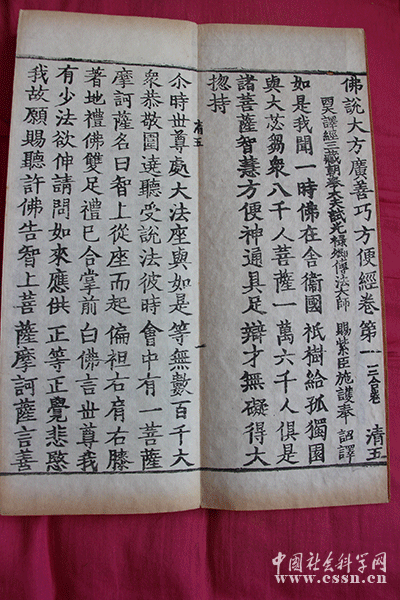 佛說大方廣善巧方便經卷第一 三合卷 清五
西天譯經三藏朝奉大夫試光祿卿傳法大師 賜紫臣施護奉 詔譯
如是我聞一時佛在舍衞國祇樹給孤獨園
與大苾芻衆八千人菩薩一萬六千人俱是
諸菩薩智慧方便神通具足辯才無礙得大
揔持
清五 一
尒時世尊處大法座與如是等無數百千大
衆恭敬圍遶聽受說法彼時會中有一菩薩
摩訶薩名曰智上從座而起偏袒右肩右膝
著地禮佛雙足禮已合掌前白佛言世尊我
有少法欲伸請問如來應供正等正覺悲愍
我故願賜聽許佛告智上菩薩摩訶薩言善
中国社会科学网
www.cssn.cn